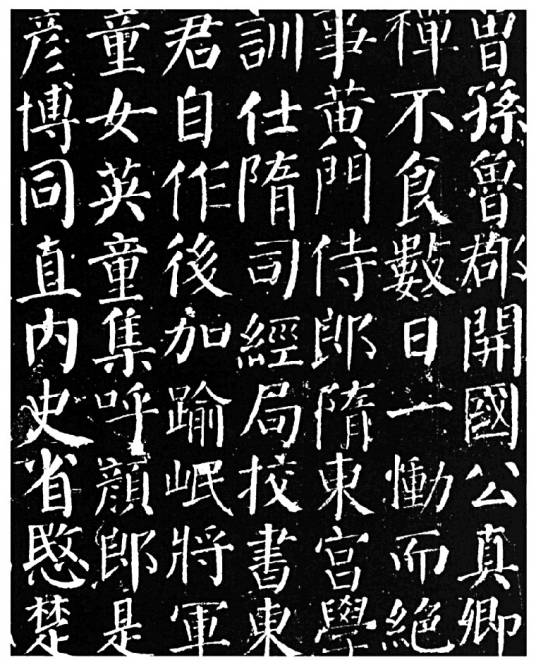 曾孫魯郡開國公真卿
禪不食數日一慟而絕
事黃門侍郎隋東宮學
訓仕隋司經局挍書東
君自作後加踰岷將軍
童女英童集呼顏郎是
彥博同直內史省愍楚